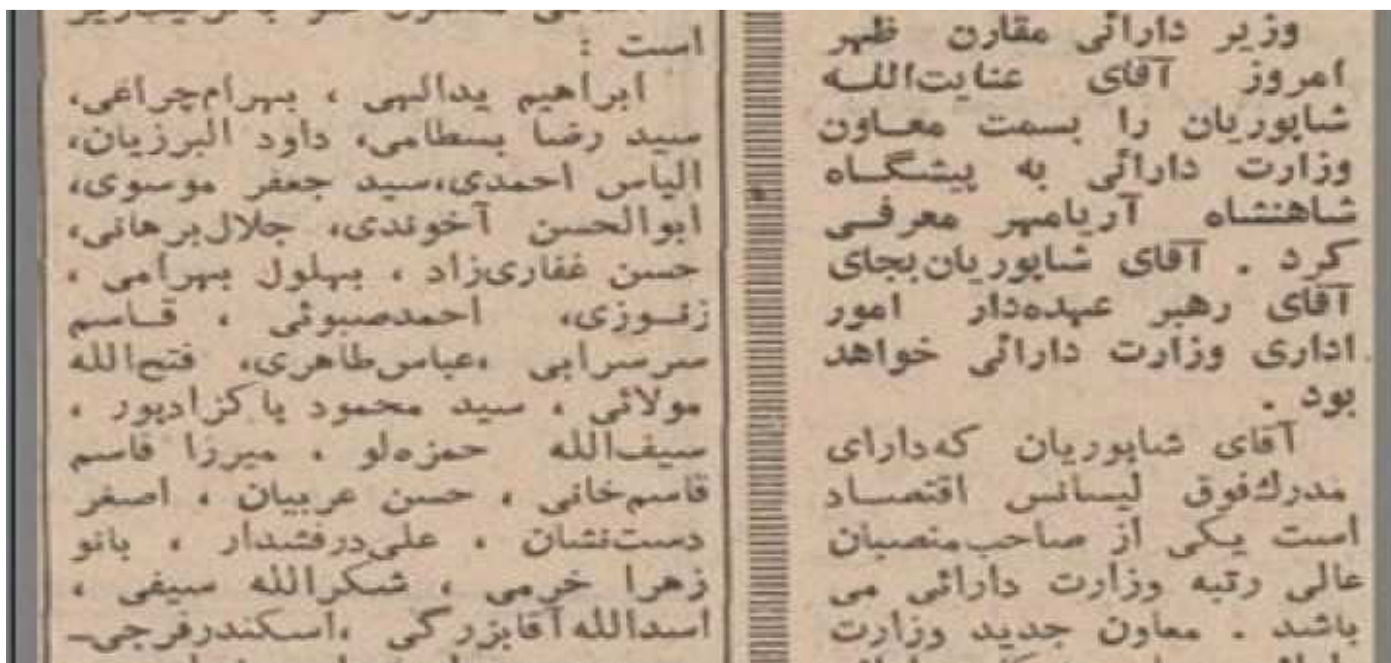 وزیر دارائی مقارن ظهر
امروز آقای عنایت‌اللـه
شاپوریان را بسمت معـاون
وزارت دارائی به پیشگـاه
شاهنشاه آریامهر معرفـی
کرد . آقای شاپوریان بجای
آقای رهبر عهده‌دار امور
اداری وزارت دارائی خواهد
بود .
آقای شاپوریان که‌دارای
مدرك‌فوق لیسانس اقتصـاد
است یـکی از صاحب‌منصبان
عالی رتبه وزارت دارائی می
باشد . معاون جدید وزارت
است :
ابراهیم یدالهی ، بهرام‌چراغی،
سید رضا بسطامی، داود البرزیان،
الیاس احمدی،سید جعفر موسوی،
ابوالحسن آخوندی، جلال‌برهانی،
حسن غفاری‌زاد ، بهلول بهرامی ،
زنـوزی، احمدصبوئی ، قـاسم
سرسرابی ،عباس‌طاهری، فتح‌الله
مولائی ، سید محمود پاکزادپور ،
سیف‌الله حمزه‌لو ، میرزا قاسم
قاسم‌خانی ، حسن عربیان ، اصغر
دست‌نشان ، علی‌درفشدار ، بانو
زهرا خرمی ، شکرالله سیفی ،
اسدالله‌آقابزرگی ،اسکندرفرجی‌ـ